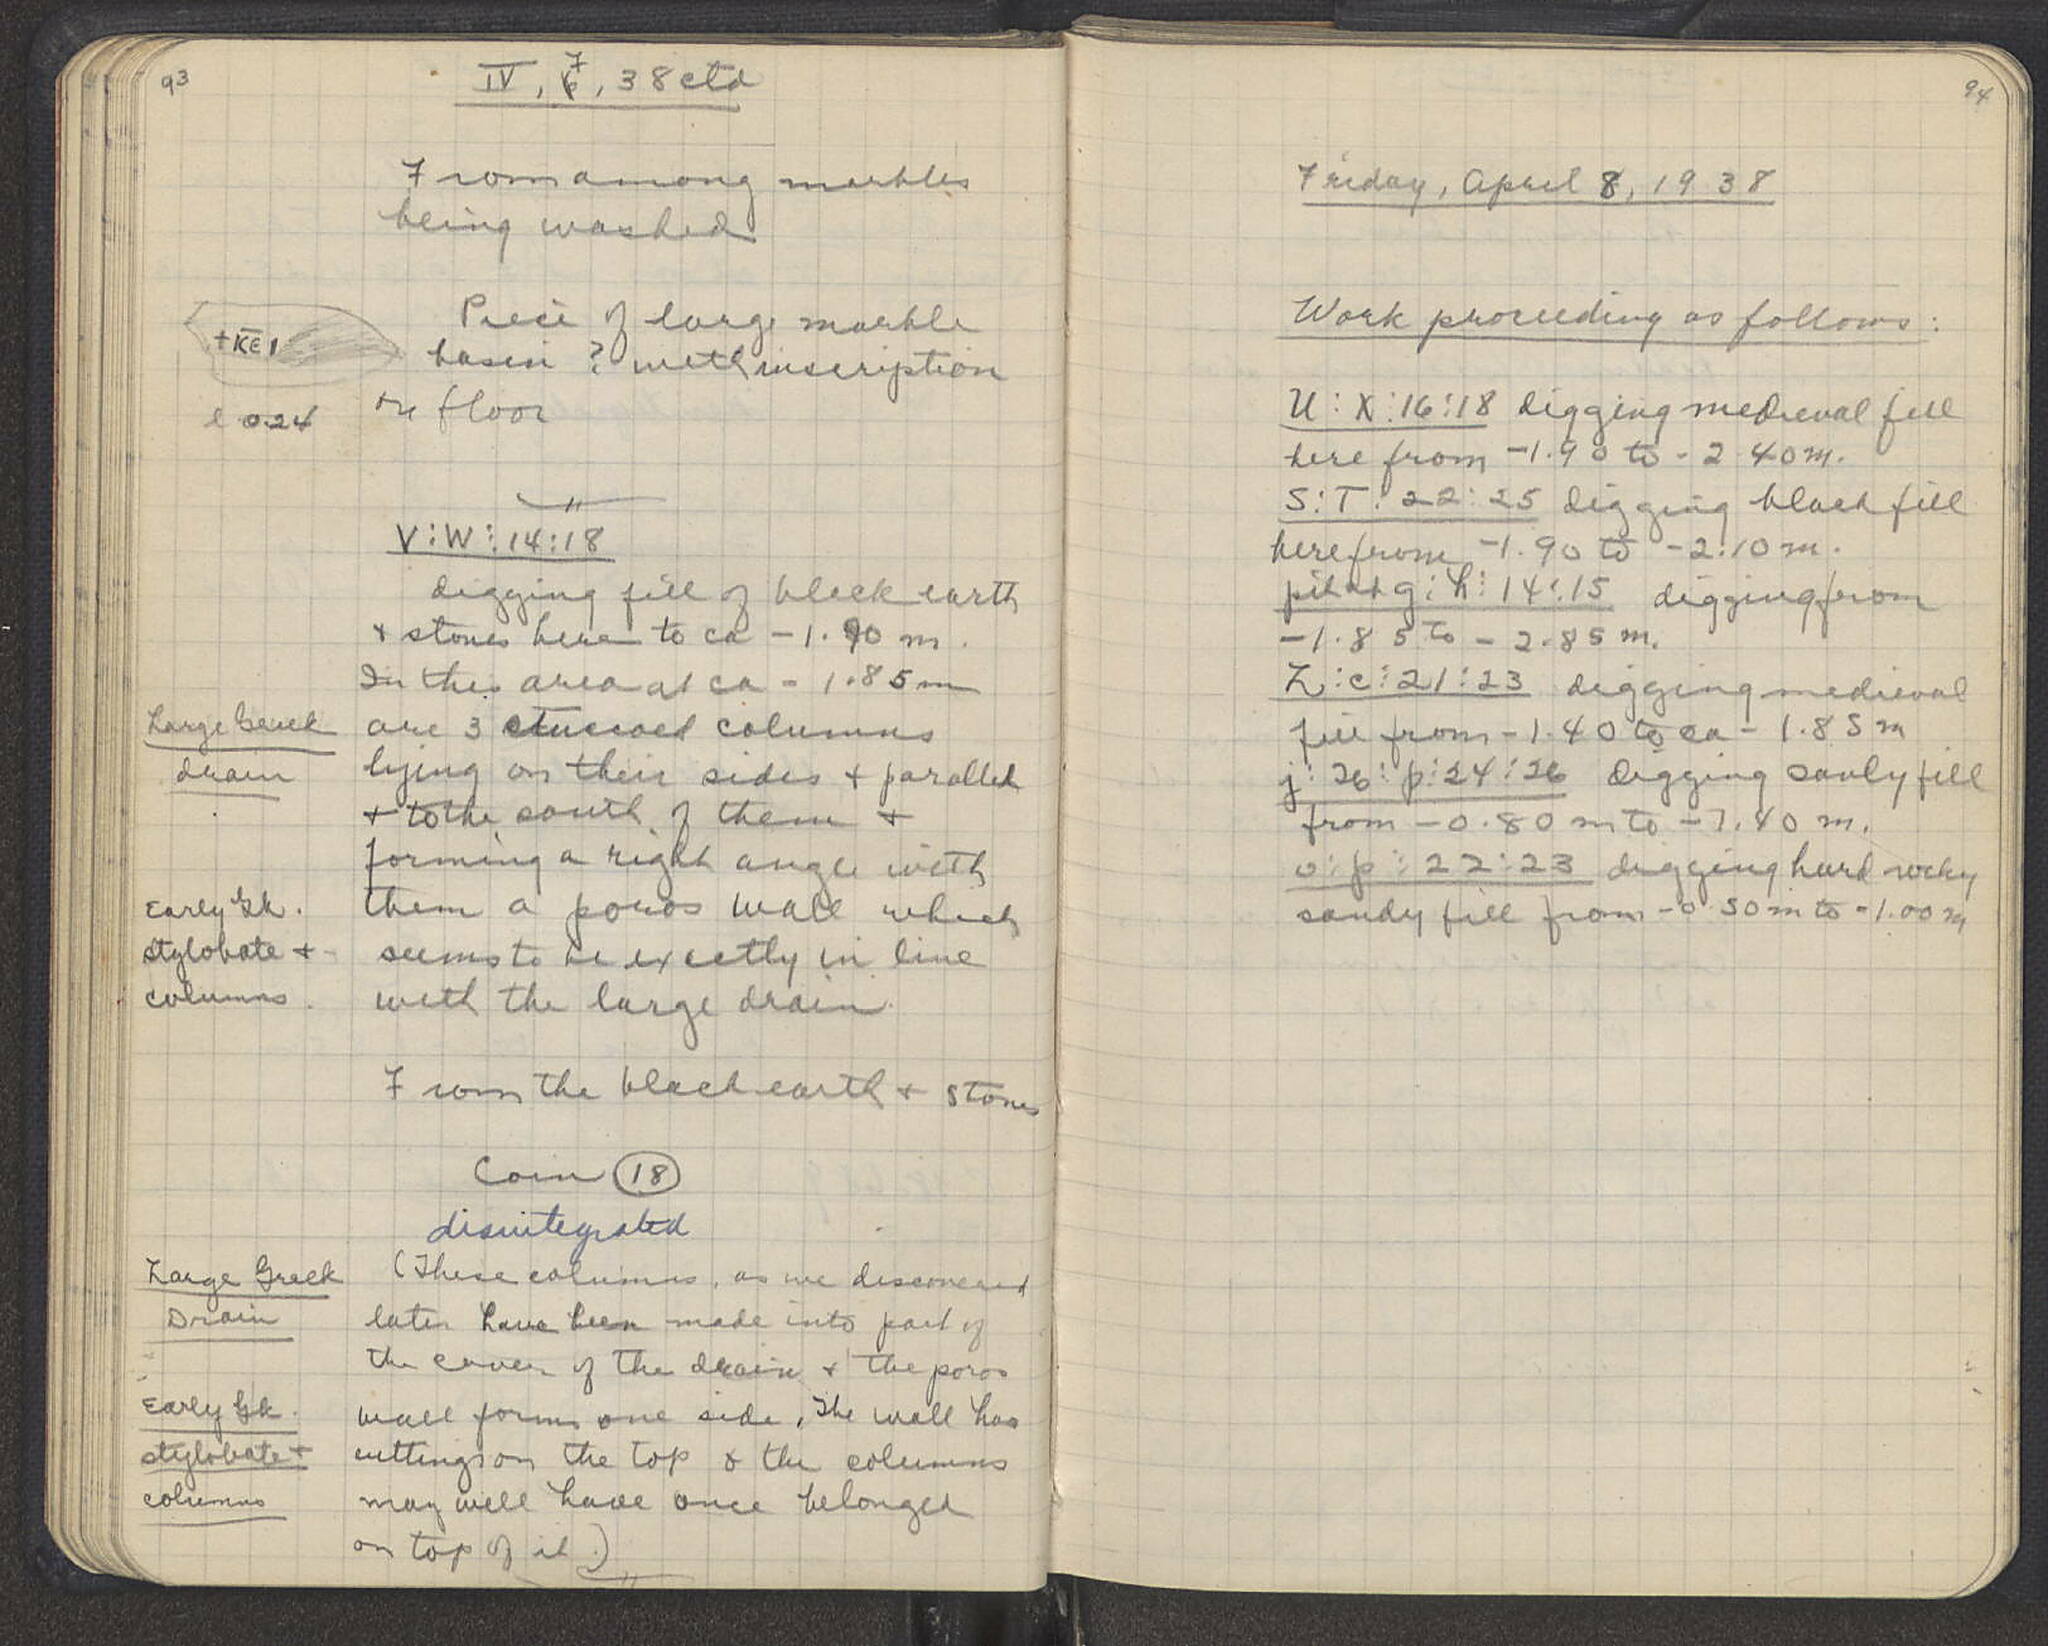 93
IV, 7, 38 ctd
From among marbles
being washed
Piece of large marble
basin ? with inscription
on floor
+ΚΕ
l 0.24
V:W:14:18
digging fill of black earth
+ stones here to ca -1.90 m.
In this area at ca - 1.85 m
are 3 stuccoed columns
lying on their sides + parallel
+ to the south of them +
forming a right angle with
them a poros wall which
seems to be exactly in line
with the large drain.
Large Greek
drain
Early Gk.
stylobate +
columns.
From the black earth + stones
Coin 18
disintegrated
(These columns, as we discovered
later have been made into part of
the cover of the drain + the poros
wall forms one side. The wall has
cuttings on the top & the columns
may well have once belonged
on top of it.)
Large Greek
Drain
Early Gk.
stylobate +
columns
94
Friday, April 8, 1938
Work proceeding as follows:
U:X:16:18 digging medieval fill
here from -1.90 to -2.40 m.
S:T:22:25 digging black fill
here from -1.90 to -2.10 m.
pit at g:h:14:15 digging from
-1.85 to -2.85 m.
Z:c:21:23 digging medieval
fill from -1.40 to ca - 1.85 m
j:26:p:24:26 digging sandy fill
from -0.80 m to -1.40 m.
o:p:22:23 digging hard rocky
sandy fill from -0.50 m to -1.00 m